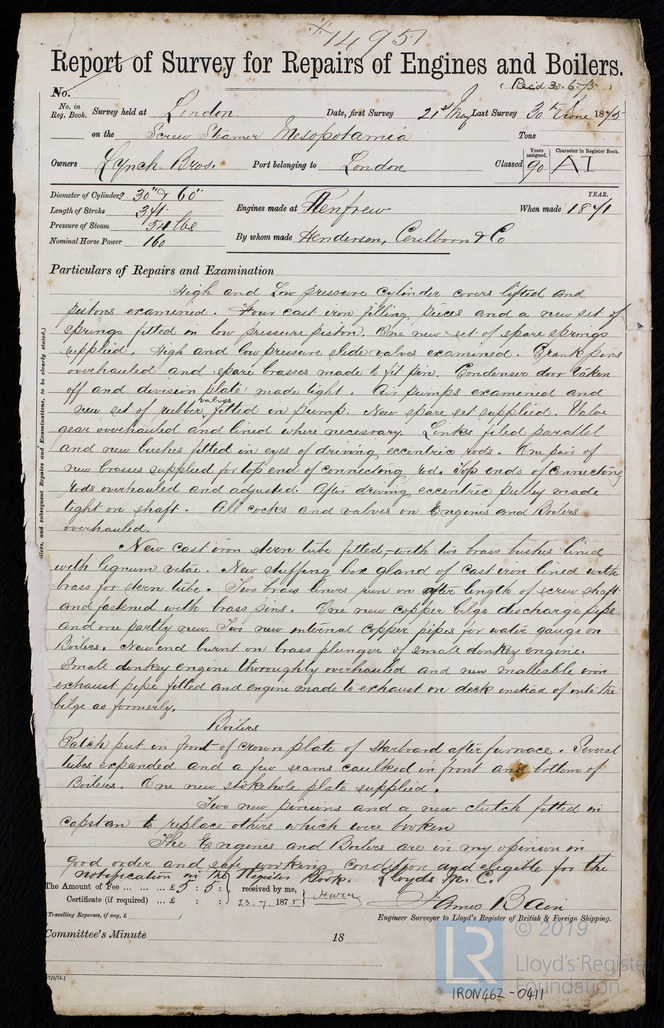 14951
Report of Survey for Repairs of Engines and Boilers.
No.
(Recd 30.6/75)
No. in Reg. Book. Survey held at London Date, first Survey 21st May Last Survey 30th June 1875
on the Screw Steamer Mesopotamia Tons
Owners Lynch Bros. Port belonging to London Classed Years assigned. 90 Character in Register Book. A1
Diameter of Cylinders 30" & 60"
Length of Stroke 3ft
Pressure of Steam 54 lbs
Nominal Horse Power 160
Engines made at Renfrew When made YEAR. 1871
By whom made Henderson, Coulborn & Co
Particulars of Repairs and Examination
High and Low pressure cylinder covers lifted and
pistons examined. Four cast iron filling pieces and a new set of
springs fitted in low pressure piston. One new set of spare springs
supplied. High and low pressure slide valves examined. Crank pins
overhauled and spare brasses made to fit pin. Condenser door taken
off and division plate made tight. Air pumps examined and
new set of rubber valves fitted in pump. New spare set supplied. Valve
gear overhauled and lined where necessary. Links filed parallel
and new bushes fitted in eyes of driving eccentric rods. One pair of
new brasses supplied for top end of connecting rod. Top ends of connecting
rods overhauled and adjusted. After driving eccentric pulley made
tight on shaft. All cocks and valves on Engines and Boilers
overhauled.
New cast iron stern tube fitted, with two brass bushes lined
with lignum vitae. New stuffing box gland of cast iron lined with
brass for stern tube. Two brass liners run on after length of screw shaft
and fastened with brass pins. One new copper bilge discharge pipe
and one partly new. Two new internal copper pipes for water gauge on
Boilers. New end burnt on brass plunger of small donkey engine.
Small donkey engine thoroughly overhauled and new malleable iron
exhaust pipe fitted and engine made to exhaust on deck instead of into the
bilge as formerly.
Boilers
Patch put in front of crown plate of starboard after furnace. Several
tubes expanded and a few seams caulked in front and bottom of
Boilers. One new stokehole plate supplied.
Two new pinions and a new clutch fitted in
capstan to replace others which were broken
The Engines and Boilers are in my opinion in
good order and safe working condition and eligible for the
notification in the Register Book. Lloyds M.C.
The Amount of Fee ... £ 5 : 5 : received by me,
Certificate (if required) ... £ : : 23.7.1875
James Bain
Travelling Expenses, if any, £
Engineer Surveyor to Lloyd's Register of British & Foreign Shipping.
Committee's Minute 18
oilers, and subsequent Repairs and Examinations, to be clearly stated.)
© 2019
LR
Lloyd's Register
Foundation
IRON462-0411